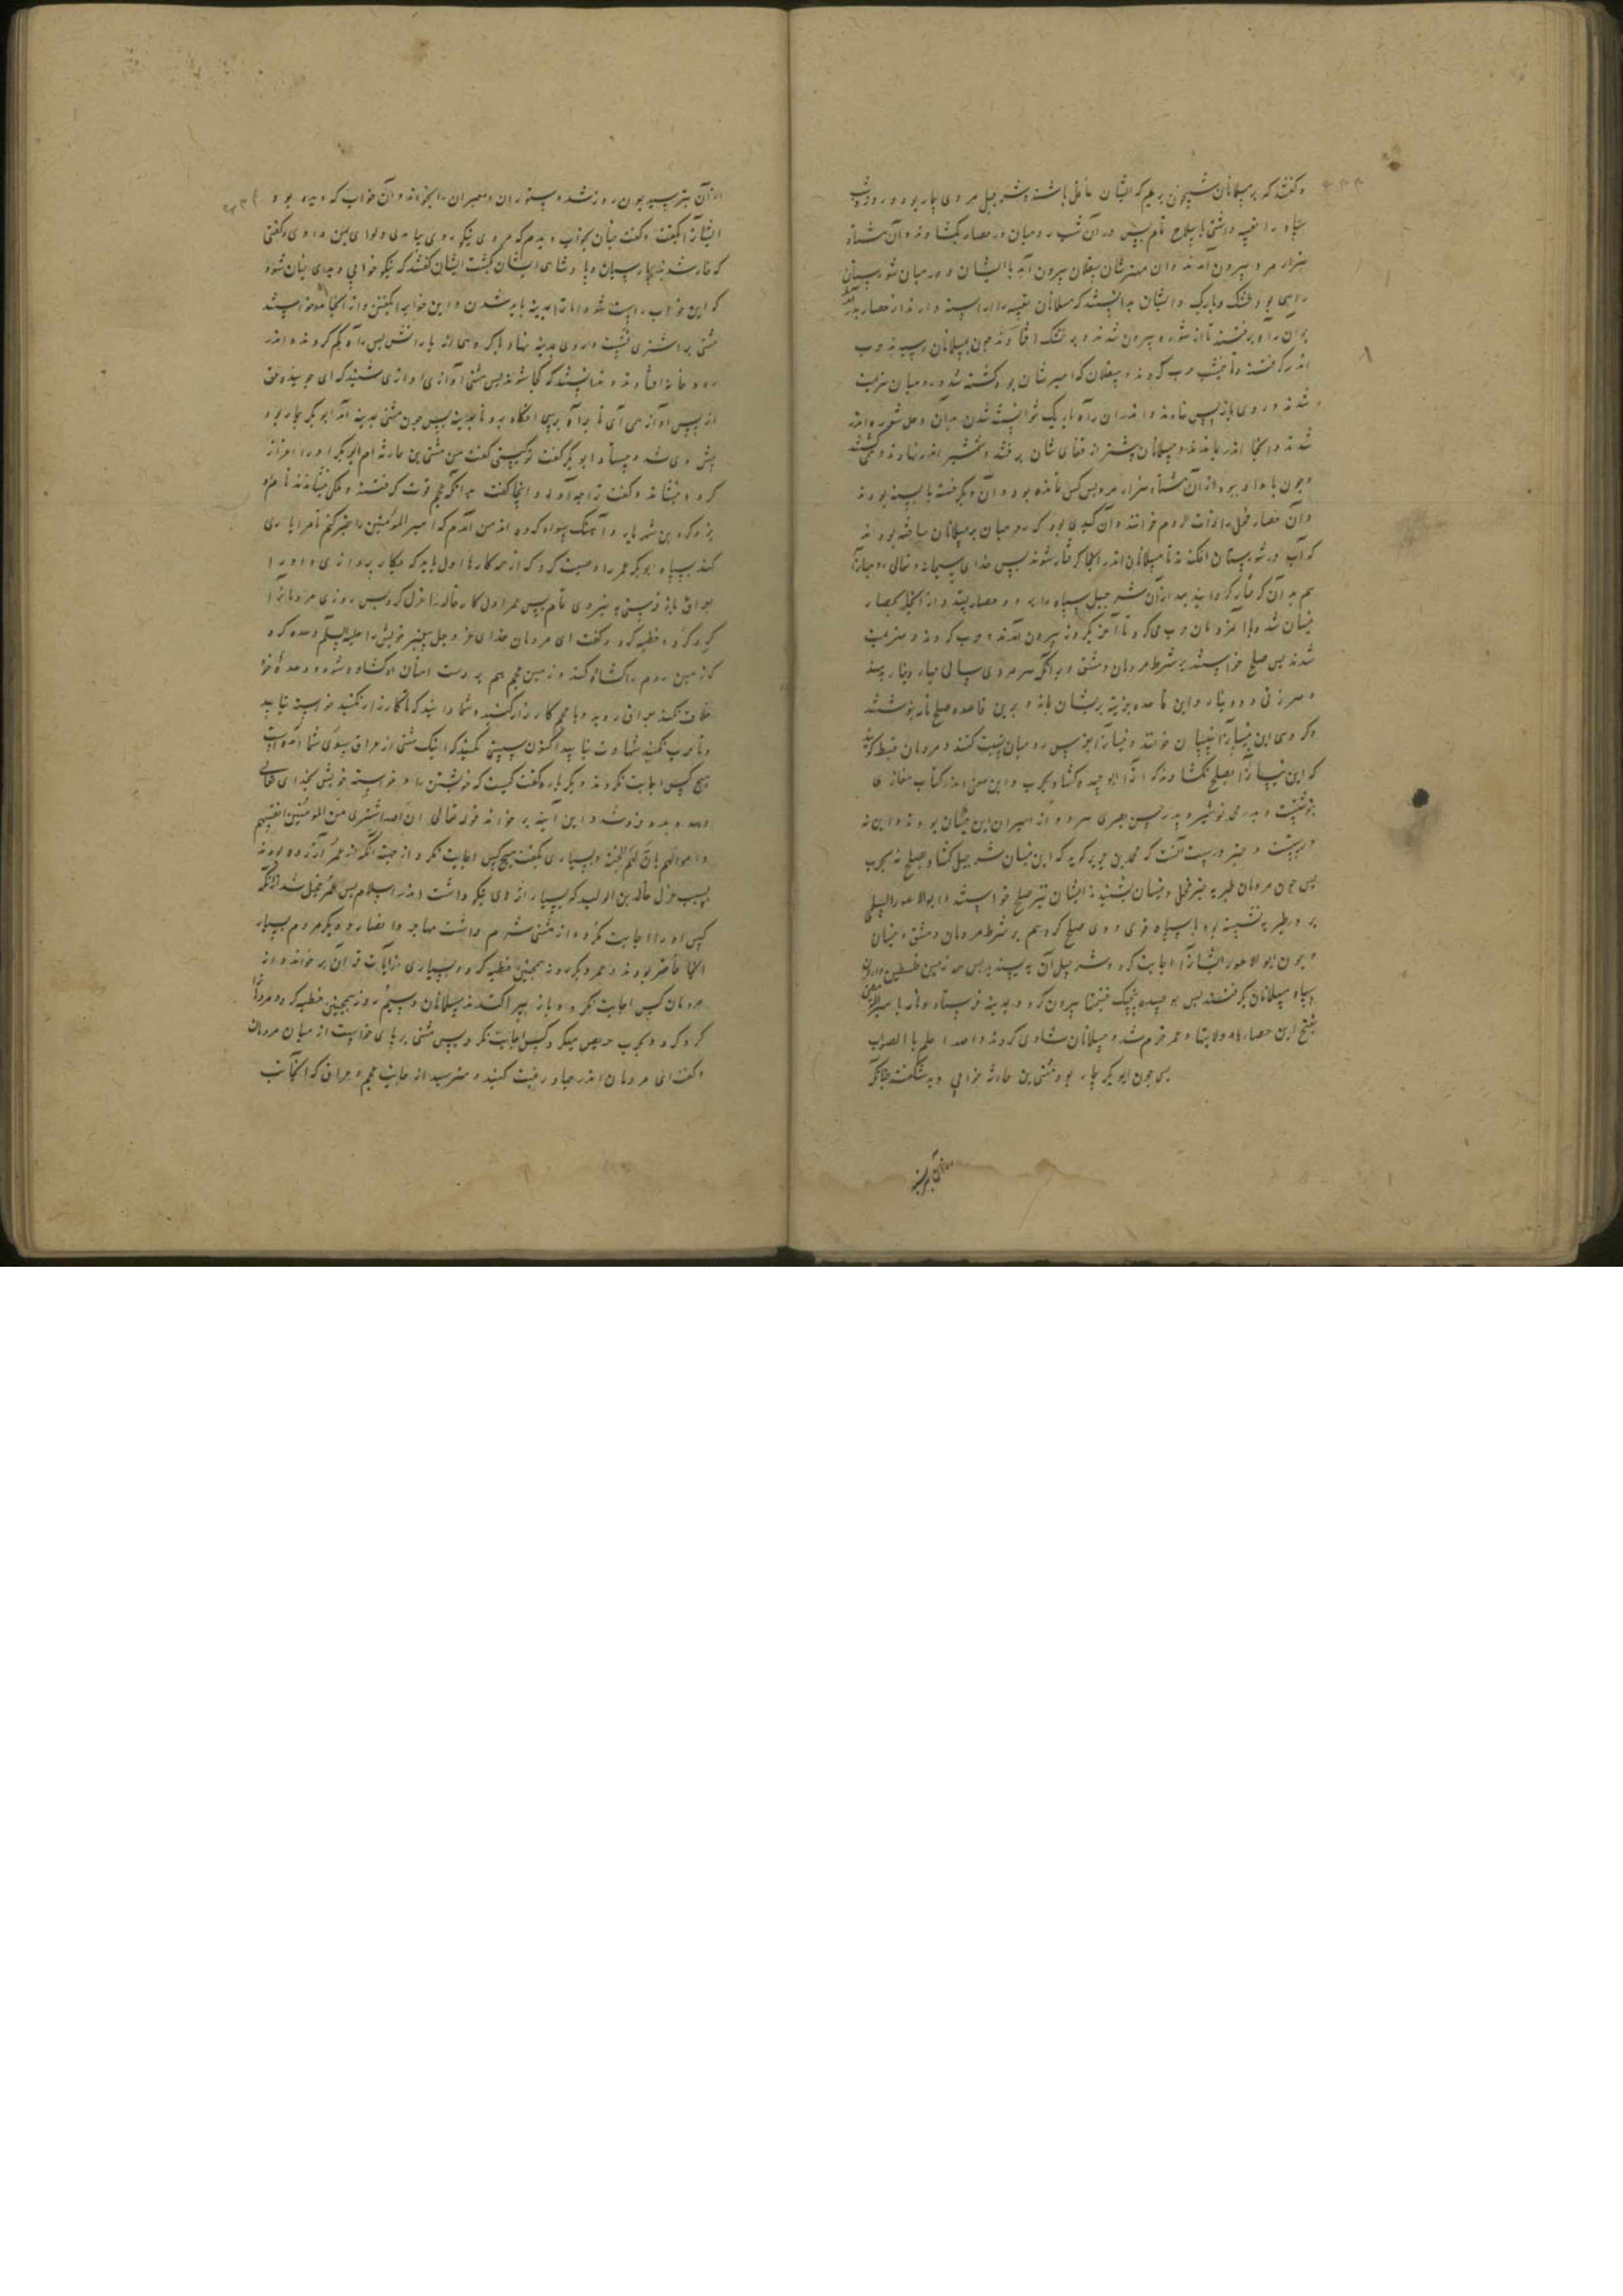 و گفتند که بر مسلمانان شبیخون بریم که ایشان غافل باشند و شرجیل مردی بیدار بود و روز و شب
سپاه را تعبیه داشتی با سلاح تمام پس در آن شب رومیان در حصار بکشادند و آن هشتاد
هزار مرد بیرون آمدند و آن مهترشان سقلان بیرون آمد با ایشان و در میان شورستان
راهی بود خشک و باریک و ایشان ندانستند که مسلمانان تعبیه راراسته دارند از حصار
بران راه برفتند تا از شوره بیرون شدند و بر خشک افتادند چون بمسلمانان رسیدند حرب
اندر گرفتند و تا حرب کردند و سقلان که امیرشان بود کشته شد و رومیان هزیمت
شدند و روی باز پس نهادند و اندران راه باریک نتوانستند شدن بدان وحل شوره اندر
شدند و آنجا اندر بماندند و مسلمانان پس از قفای شان برفتند و شمشیر اندر نهادند و
و چون بامداد ببود از آن هشتاد هزار مرد بس کس نمانده بود و آن دیگر بودند
و آن حصار فحل را ذات الردم خوانند و آن کیدی بود که رومیان بر مسلمانان ساخته بودند
که آب در شورستان افکندند تا مسلمانان اندر آنجا گرفتار شوند پس خدای سبحانه و تعالی رومیان را
هم بدان گرفتار گردانید بعد از آن شرجیل سپاه را و حصار و از آنجا بحصار
بیسان شد و با مردمان حرب می کرد تا آخر یکروز بیرون آمدند و حرب کردند و هزیمت
شدند پس صلح خواستند بر شرط مردمان دمشق و بر آنکه هر مردی سالی چهار دینار بدهند
و هر زنی دو دینار و این قاعده جزیه بریشان بماند و برین قاعده صلح نامه نوشتند
که این بیسان را بصلح نکشادند که آنرا ابو عبیده کشاد بحرب و این سخن اندر کتاب مغازی
نوشتست و پدر محمد بن سیرین و پدر حسن بصری هر دو از اسیران این بیسان بودند و این نه
درست و خبر درست آنست که محمد بن جریر گوید که این بیسان شرجیل کشاد بصلح نه بحرب
پس چون مردمان طبریه خبر فحل و بیسان بشنیدند ایشان نیز صلح خواستند و ابوالاعور السلمی
بر در طبریه نشسته بود با سپاه قوی و وی صلح کرد هم بر شرط مردمان دمشق و بیسان
و چون ابوالاعور ایشان را اجابت کرد و شرجیل آن پس همه زمین فلسطین و اردن
سپاه مسلمانان بگرفتند پس بو عبیده پنجیک غنیمتها بیرون کرد و بمدینه فرستاد و نامه با میرالمؤمنین
بفتح این حصارها و ولایتها و عمر خرم شد و مسلمانان شادی کردند والله اعلم بالصواب
پس چون ابوبکر بیمار بود مثنی بن حارثه خوابی دید شگفت چنانکه
از آن بترسید
از آن بترسید چون روز شد دستوران و معبران را بخواند و آن خواب که دیده بود
ایشان را بگفت و گفت چنان بخواب دیدم که مردی نیکو روی بیامدی و لوای بمن دادی و گفتی
که کار شد پارسیان و پادشاهی ایشان گشت ایشان گفتند که نیکو خوابی دیدی چنان شود
که این خواب راست شود اما ترا بمدینه باید شدن و این خواب را بگفتن و از آنجا مدد خواستند
مثنی بر اشتری نشست و روی بمدینه نهاد با گروهی از یارانش پس راه گم کردند و اندر
افتادند و ندانستند که کجا شوند پس مثنی آواز ی شنید که ای
از پس آواز می آی تا براه برسی آنگاه برو تا بمدینه پس چون مثنی بمدینه آمد ابوبکر بیمار بود
پیش وی شد و بیستاد ابوبکر گفت تو کیستی گفت من مثنی بن حارثه ام ابوبکر او را اعزاز
کرد و بنشاند و گفت ترا چه آورد اینجا گفت بدانکه عجم قوت گرفتند و ملکی بنشاندند نام او
یزدکرد بن شهریار و آهنگ سواد کردند من آمدم که امیر المؤمنین را خبر کنم تا مرا یاری
کند بسپاه ابوبکر عمر را وصیت کرد که از همه کارها اول باید که بکار پردازی و او را
بعراق باز فرستی به نیروی تمام پس عمر اول کار خالد را عزل کرد پس روزی مردمان را
گرد کرد و خطبه کرد و گفت ای مردمان خدای عز و جل پیغمبر خویش را علیه السلم وعده کرد
که زمین روم را کشاده کند و زمین عجم هم بر دست امتان او کشاده شود و وعده خود
خلاف نکند بعراق روید و با عجم کارزار کنید و شما دانید که تا کارزار نکنید خواسته نیابید
و تا حرب نکنید شهادت نیابید اکنون سستی مکنید که اینک مثنی از عراق بسوی شما آمده است
هیچ کس اجابت نکردند دیگر باره گفت کیست که خویشتن را و خواسته خویش بخدای تعالی
دهد و بدو فروشد و این آیه بر خواند قوله تعالی ان الله اشتری من المؤمنین انفسهم
و اموالهم بان لهم الجنة و بسیاری بگفت هیچ کس اجابت نکرد از جهت آنکه از عمر آزرده بودند
بسبب عزل خالد بن الولید که بسیار اثر های نیکو داشت اندر اسلام پس عمر خجل شد از آنکه
کس او را اجابت نکرد و از مثنی شرم داشت مهاجر و انصار و دیگر مردم بسیار
آنجا حاضر بودند و عمر دیگر روز همچنین خطبه کرد و بسیاری از آیات قرآن بر خواند و از
مردمان کس اجابت نکرد و باز بپراکندند مسلمانان و سیم روز همچنین خطبه کرد و مردمان را
گرد کرد و بحرب حریص میکرد و کس اجابت نکرد پس مثنی بر پای خواست از میان مردمان
و گفت ای مردمان اندر جهاد رغبت کنید و مترسید از جانب عجم و عراق که آنجانب